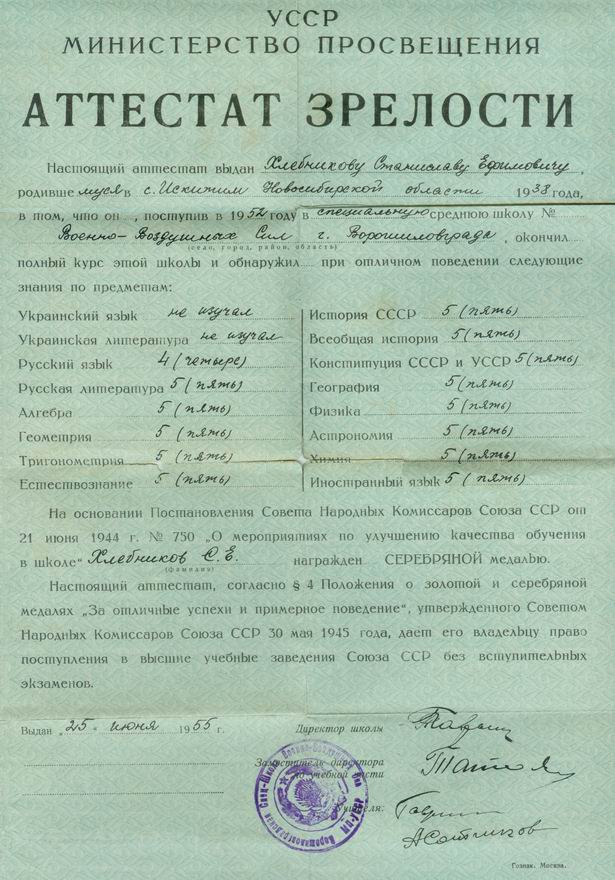 УССР
МИНИСТЕРСТВО ПРОСВЕЩЕНИЯ
АТТЕСТАТ ЗРЕЛОСТИ
Настоящий аттестат выдан Хлебникову Станиславу Ефимовичу,
родившемуся в с. Искитим Новосибирской области 1938 года,
в том, что он, поступив в 1952 году в специальную среднюю школу №
Военно-Воздушных Сил г. Ворошиловграда, окончил
(село, город, район, область)
полный курс этой школы и обнаружил при отличном поведении следующие
знания по предметам:
Украинский язык не изучал
Украинская литература не изучал
Русский язык 4 (четыре)
Русская литература 5 (пять)
Алгебра 5 (пять)
Геометрия 5 (пять)
Тригонометрия 5 (пять)
Естествознание 5 (пять)
История СССР 5 (пять)
Всеобщая история 5 (пять)
Конституция СССР и УССР 5 (пять)
География 5 (пять)
Физика 5 (пять)
Астрономия 5 (пять)
Химия 5 (пять)
Иностранный язык 5 (пять)
На основании Постановления Совета Народных Комиссаров Союза ССР от
21 июня 1944 г. № 750 „О мероприятиях по улучшению качества обучения
в школе“ Хлебников С. Е. награжден СЕРЕБРЯНОЙ медалью.
(фамилия)
Настоящий аттестат, согласно § 4 Положения о золотой и серебряной
медалях „За отличные успехи и примерное поведение“, утвержденного Советом
Народных Комиссаров Союза ССР 30 мая 1945 года, дает его владельцу право
поступления в высшие учебные заведения Союза ССР без вступительных
экзаменов.
Выдан „25“ июня 1955 г.
Директор школы
Заместитель директора
по учебной части
Учителя:
Гознак. Москва.